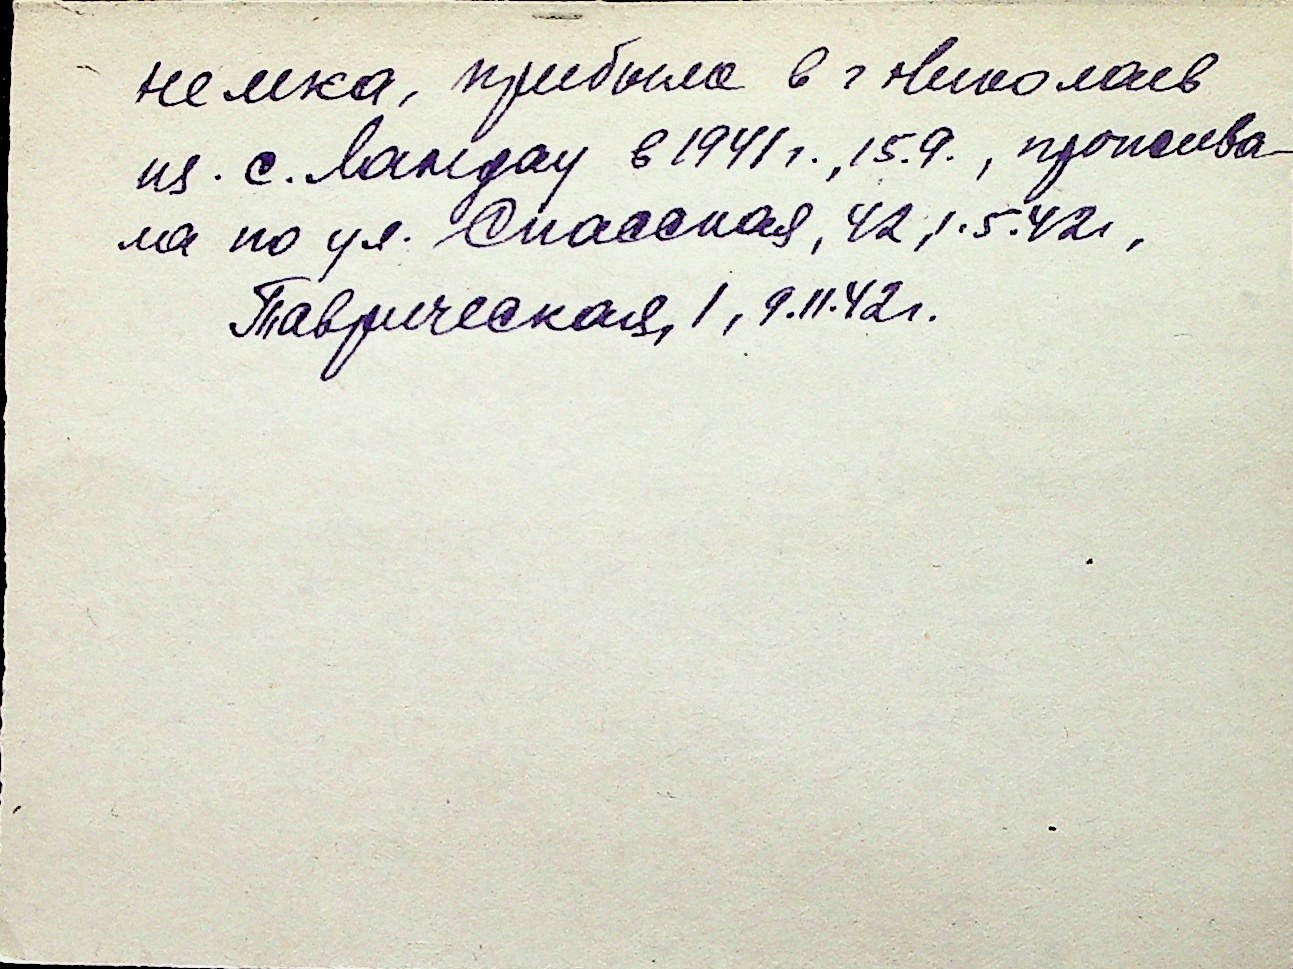 немка, прибыла в г Николаев
из. с. Ландау в 1941 г., 15.9., прожива-
ла по ул. Спасская, 42, 1.5.42г,
Таврическая, 1, 9.11.42г.